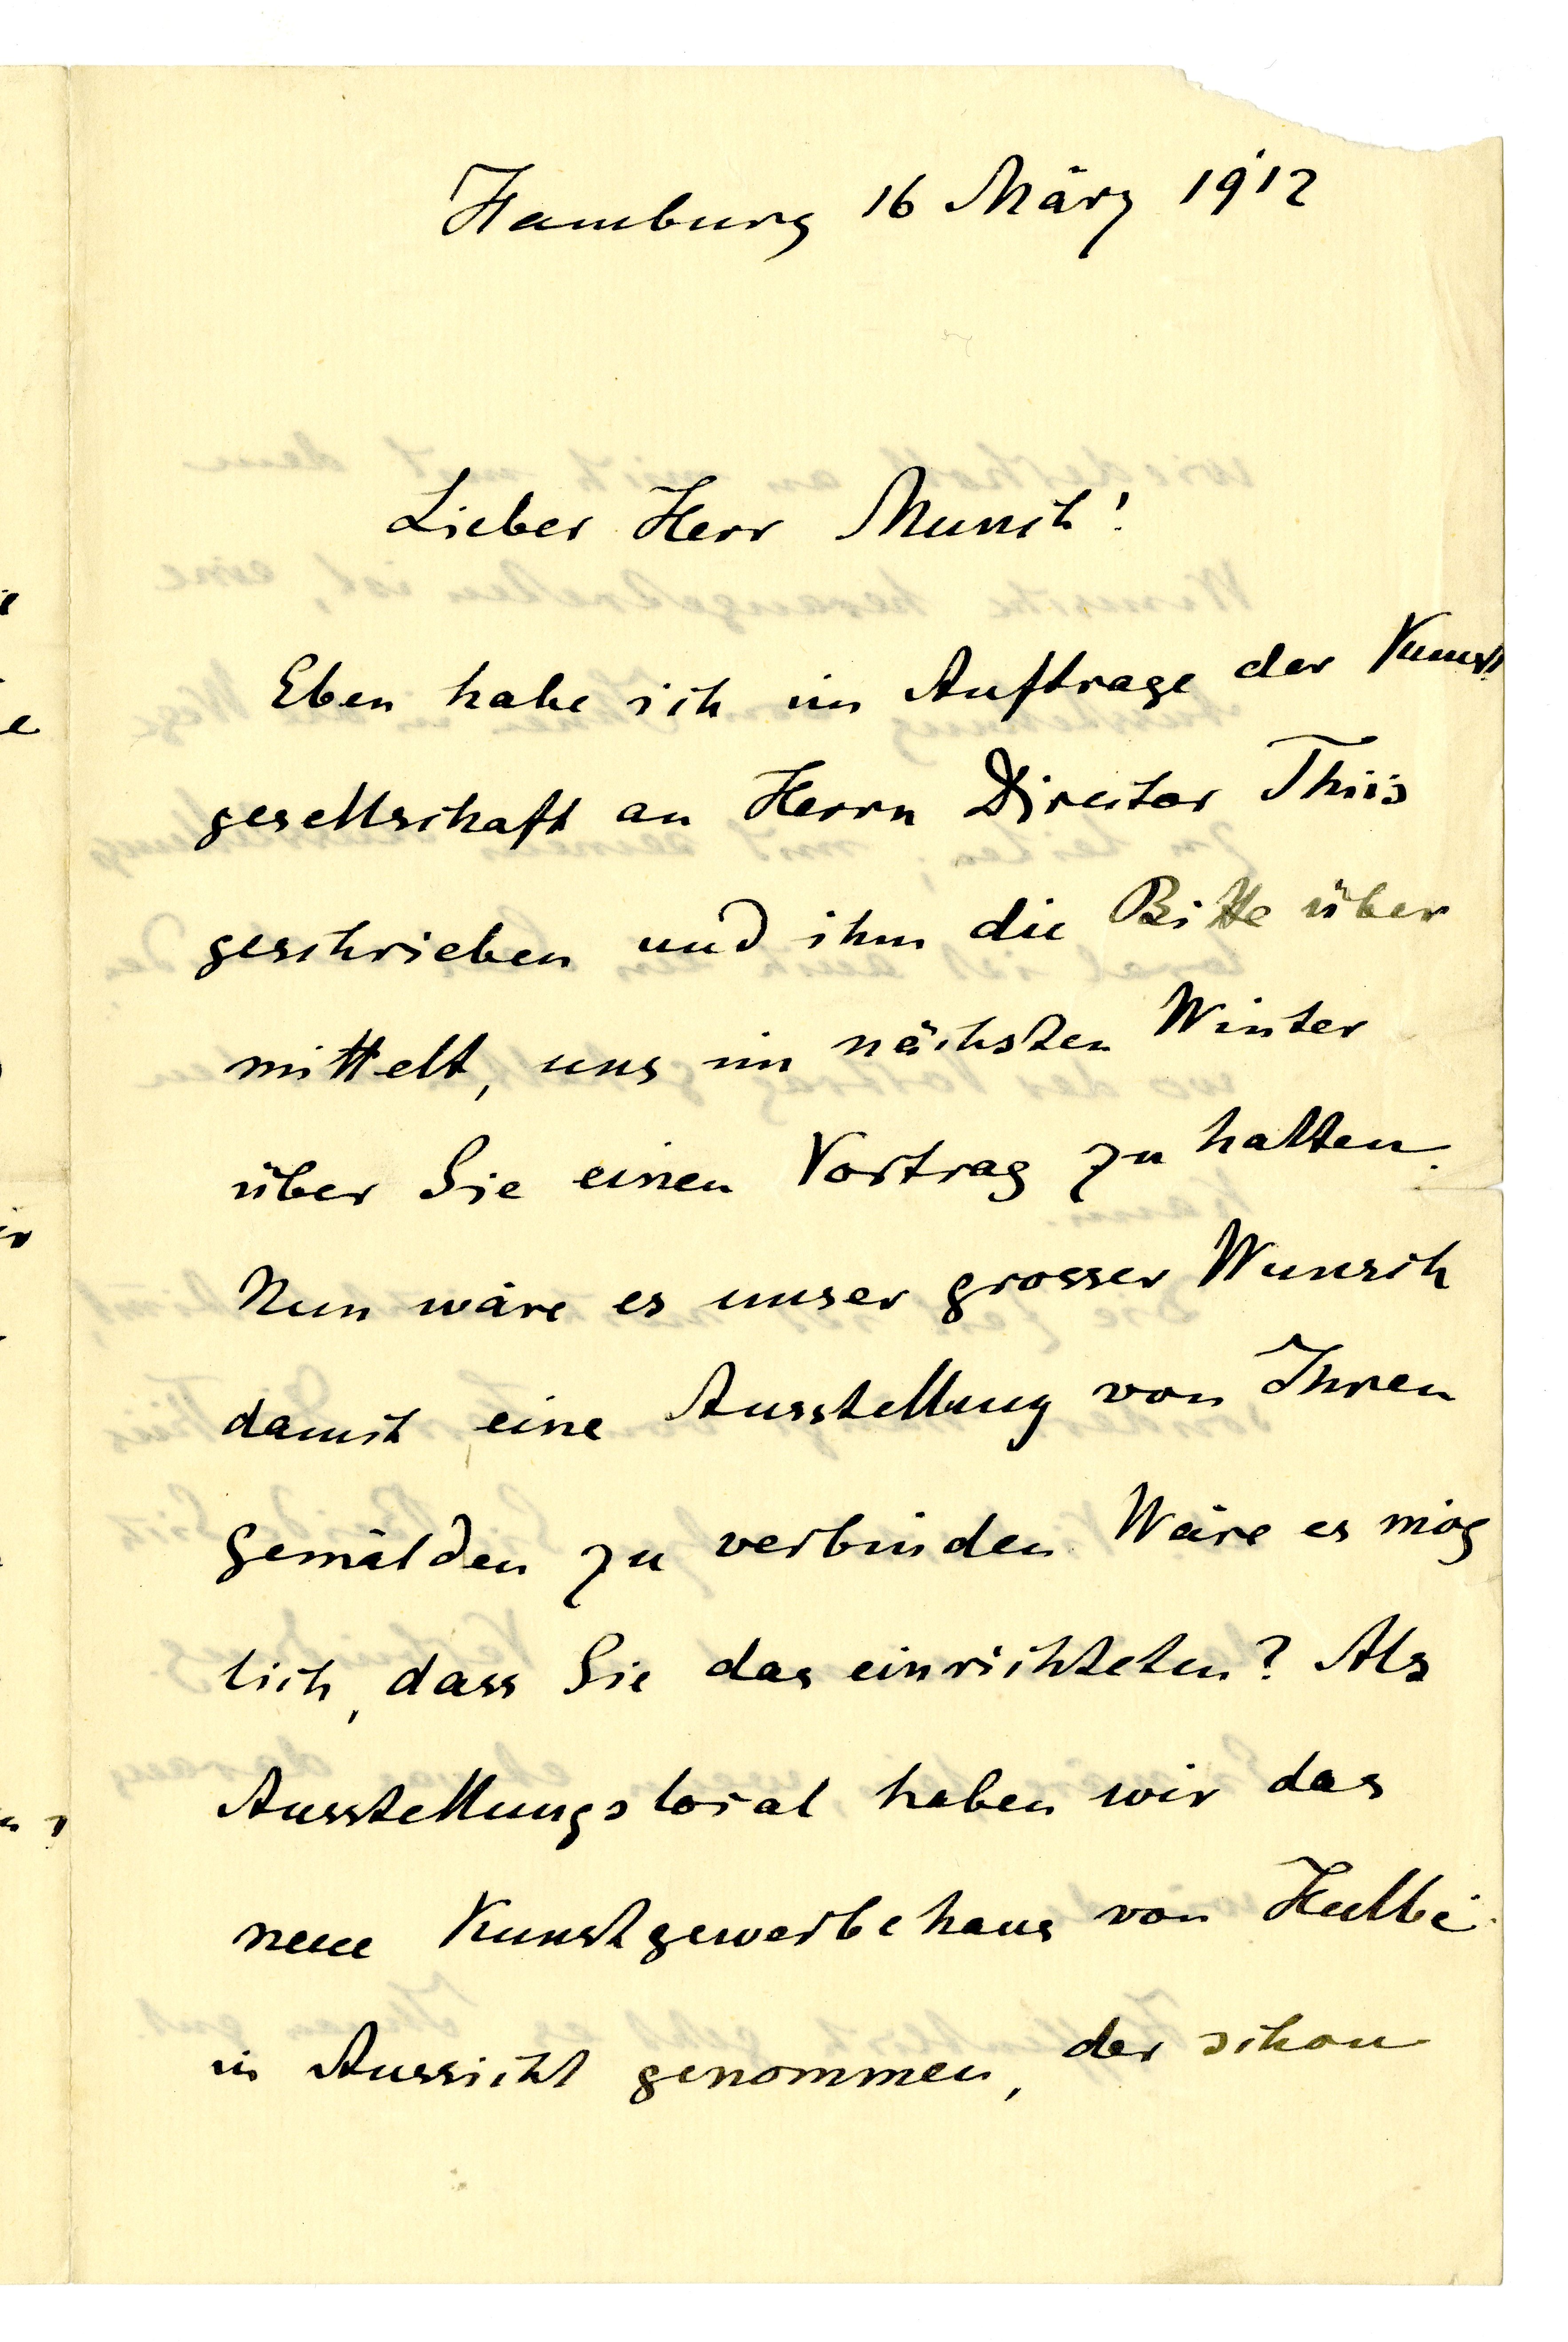 Hamburg 16 März 1912
Lieber Herr Munch!
Eben habe ich im Auftrage der Kunst
gesellschaft an Herrn Director Thiis
geschrieben und ihm die Bitte über
mittelt, uns im nächsten Winter
über Sie einen Vortrag zu halten.
Nun wäre es unser grosser Wunsch
damit eine Ausstellung von Ihren
Gemälden zu verbinden. Wäre es mög
lich, dass Sie das einrichteten? Als
Ausstellungslocal haben wir das
neue Kunstgewerbehaus von Hulbe
in Aussicht genommen, der schon